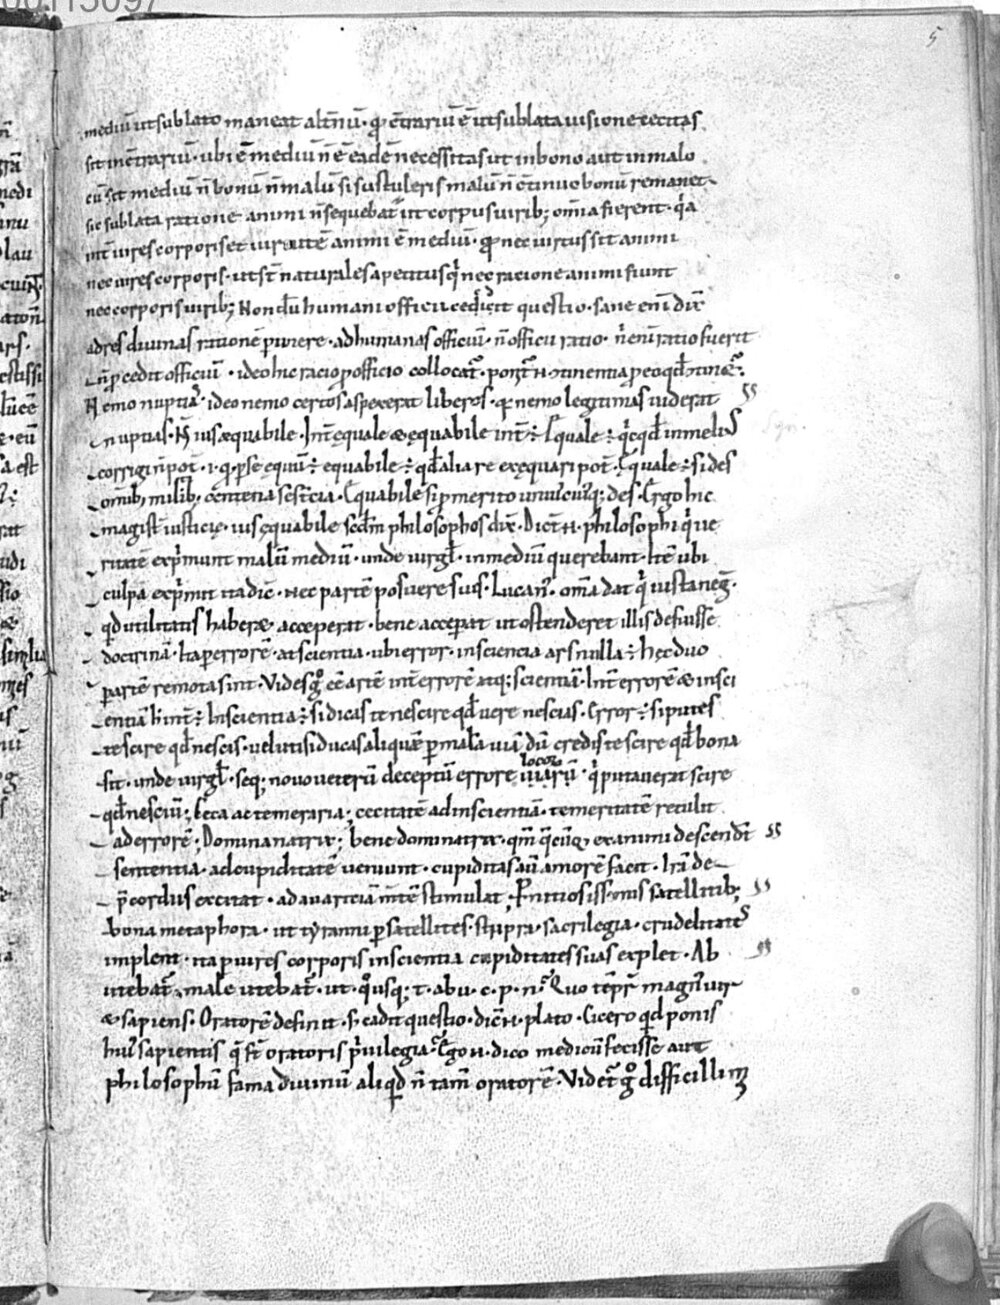 00115097
5
mediū ut sublato maneat altēnū · q̄ c̄trariū ē ut sublata uisione cecitas
sit in c̄trariū · ubi ē mediū n̄ ē eadē necessitas ut in bono aut in malo
cū sit mediū n̄ bonū n̄ malū si sustuleris malū n̄ c̄tinuo bonū remanet
sic sublata ratione animi n̄ sequebat̄ ut corpus uirib; om̄ia fierent · q̇a
int̄ uires corporis et uirtutē animi ē mediū · q̄ nec uirtus sit animi
nec uires corporis · ut st̄ naturales apetitus q̇ nec racione animi fiunt
nec corporis uirib; Nondū humani officii questio · sane eni dix̄
ad res diuinas rationē ꝑtinere · ad humanas officiū · n̄ officii ratio · n̄ eni ratio fuerit
n̄ p̄cedit officiū · ideo hic racio ꝓ officio collocat̄
Nemo nuptias · ideo nemo certos aspexerat liberos · q̄ nemo legitimas uiderat
nuptias · N̄ ius æquabile · Int̄ equale & equabile int̄ ÷ Equale ÷ q̇cqd̄ in meli᷒
corrigi n̄ pot̄ · i · q̄ ꝑ se equū ÷ equabile ÷ qd̄ alia re exequari pot̄ · Equale ÷ si des
omib; milib; centena sest̄cia · Equabile si ꝓ merito unicuiq; des · Ergo hic
magist̄ iusticię · ius equabile scd̄m philosophos dix̄ · philosophi q̇ ue
ritatē exp̄munt malū mediū · unde uirgl̄ · in mediū querebant · Itē ubi
culpā exp̄mit ita dic̄ · nec partē posuere suis · Lucan᷒ · om̄ia dat q̇ iusta neg̅ ·
qd utilitatis habere acceperat · bene acceperat ut ostenderet illis defuisse
doctrinā · Ita ꝑ errorē · at scientia · ubi error · inscientia ars nulla ÷ hęc duo
ꝑ artē remota sint · Vides g̊ cē artē int̄ errorē atq; scientiā · Int̄ errorē & insci
entiā h̄ int̄ ÷ Inscientia ÷ si dicas te nescire qd̄ uere nescias · Error ÷ si putes
te scire qd̄ nescis · uelut si ducas aliquē ꝑ mala uiā dū credis te scire qd̄ bona
locoꝝ
sit · unde uirgl̄ · seq; nouo ueterū deceptū errore uiarū · q̇ putauerat scire
qd̄ nesciuit · Ceca ac temeraria ; cecitatē ad inscientiā · temeritatē retulit
ad errorē ; Dominatrix ; bene dominatrix · qm̄ ex animi descendit
sententia · ad cupiditatē ueniunt · cupiditas aut amorē facit · Irā de
p̄cordiis excitat · ad auariciā mentē stimulat · ꝑniciosissimis satellitib;
bona metaphora · ut tyranni ꝑ satellites · stupra · sacrilegia · crudelitates
implent · ita ꝑ uires corporis inscientia cupiditates suas explet · Ab
utebat̄ · male utebat̄ · ut · q̊usq; t · abu · c · p · n ·
& sapiens · Oratorē definit · s; cadit questio · plato · Cicero qd ponis
hui᷒ sapientis q̄ st̄ oratoris p̄uilegia · Ergo n̄ · dico medicū fecisse aut
philosophū fama diuinū aliqd n̄ tam̄ oratorē · Videt̄ g̊ difficillim